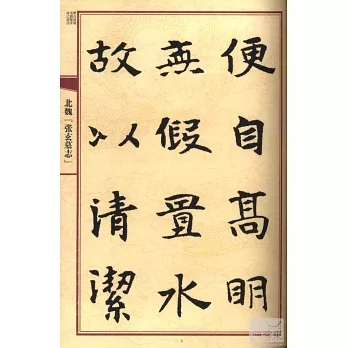 便自高明
無假置水
故以清潔
北魏『張玄墓志』